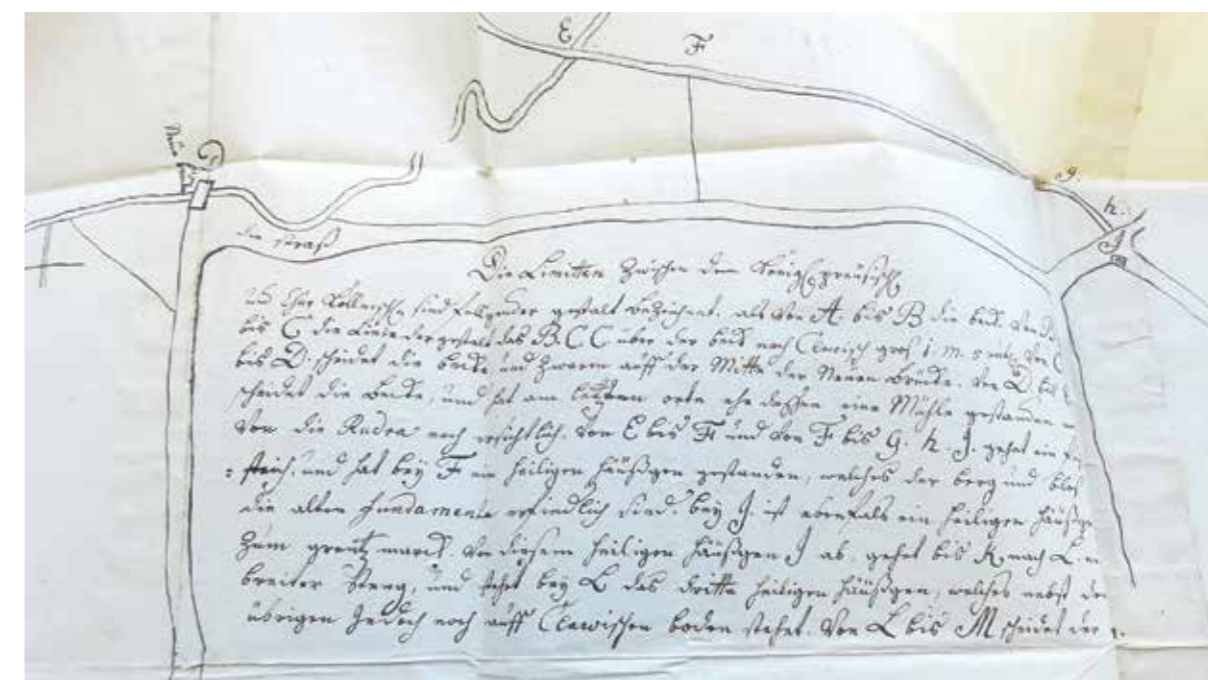 E
F
D
g.
h.
J
die straß
Die Limitten Zwischen dem Königl. preüsisch.
und Chur Kölnischn sind folgender gestalt bezeichnet. als von A bis B die beck. von B
bis C die Linie dergestalt das B. C C über der beck noch Clevisch groß 1. m. 5 von C
bis D. scheidet die becke und zwaren auff der Mitte der Neuen brücke. von D bis
scheidet die becke, und hat am letztern orte ehe dessen eine Mühle gestanden
von die Rudera noch ersichtlich. von E bis F und von F bis G. h. J. gehet ein
: steich. und hat bey F ein heiligen häußgen gestanden, welches der berg und blos
die alten fundamenta erfindlich sind. bey J. ist ebenfals ein heiligen häußge
zum grentz marck. von diesem heiligen häußgen J ab, gehet bis K nach L.
breiter Weeg, und stehet bey L das dritte heiligen häußgen, welches nebst den
übrigen Jedoch noch auff Clevischen boden stehet. von L bis M scheidet der